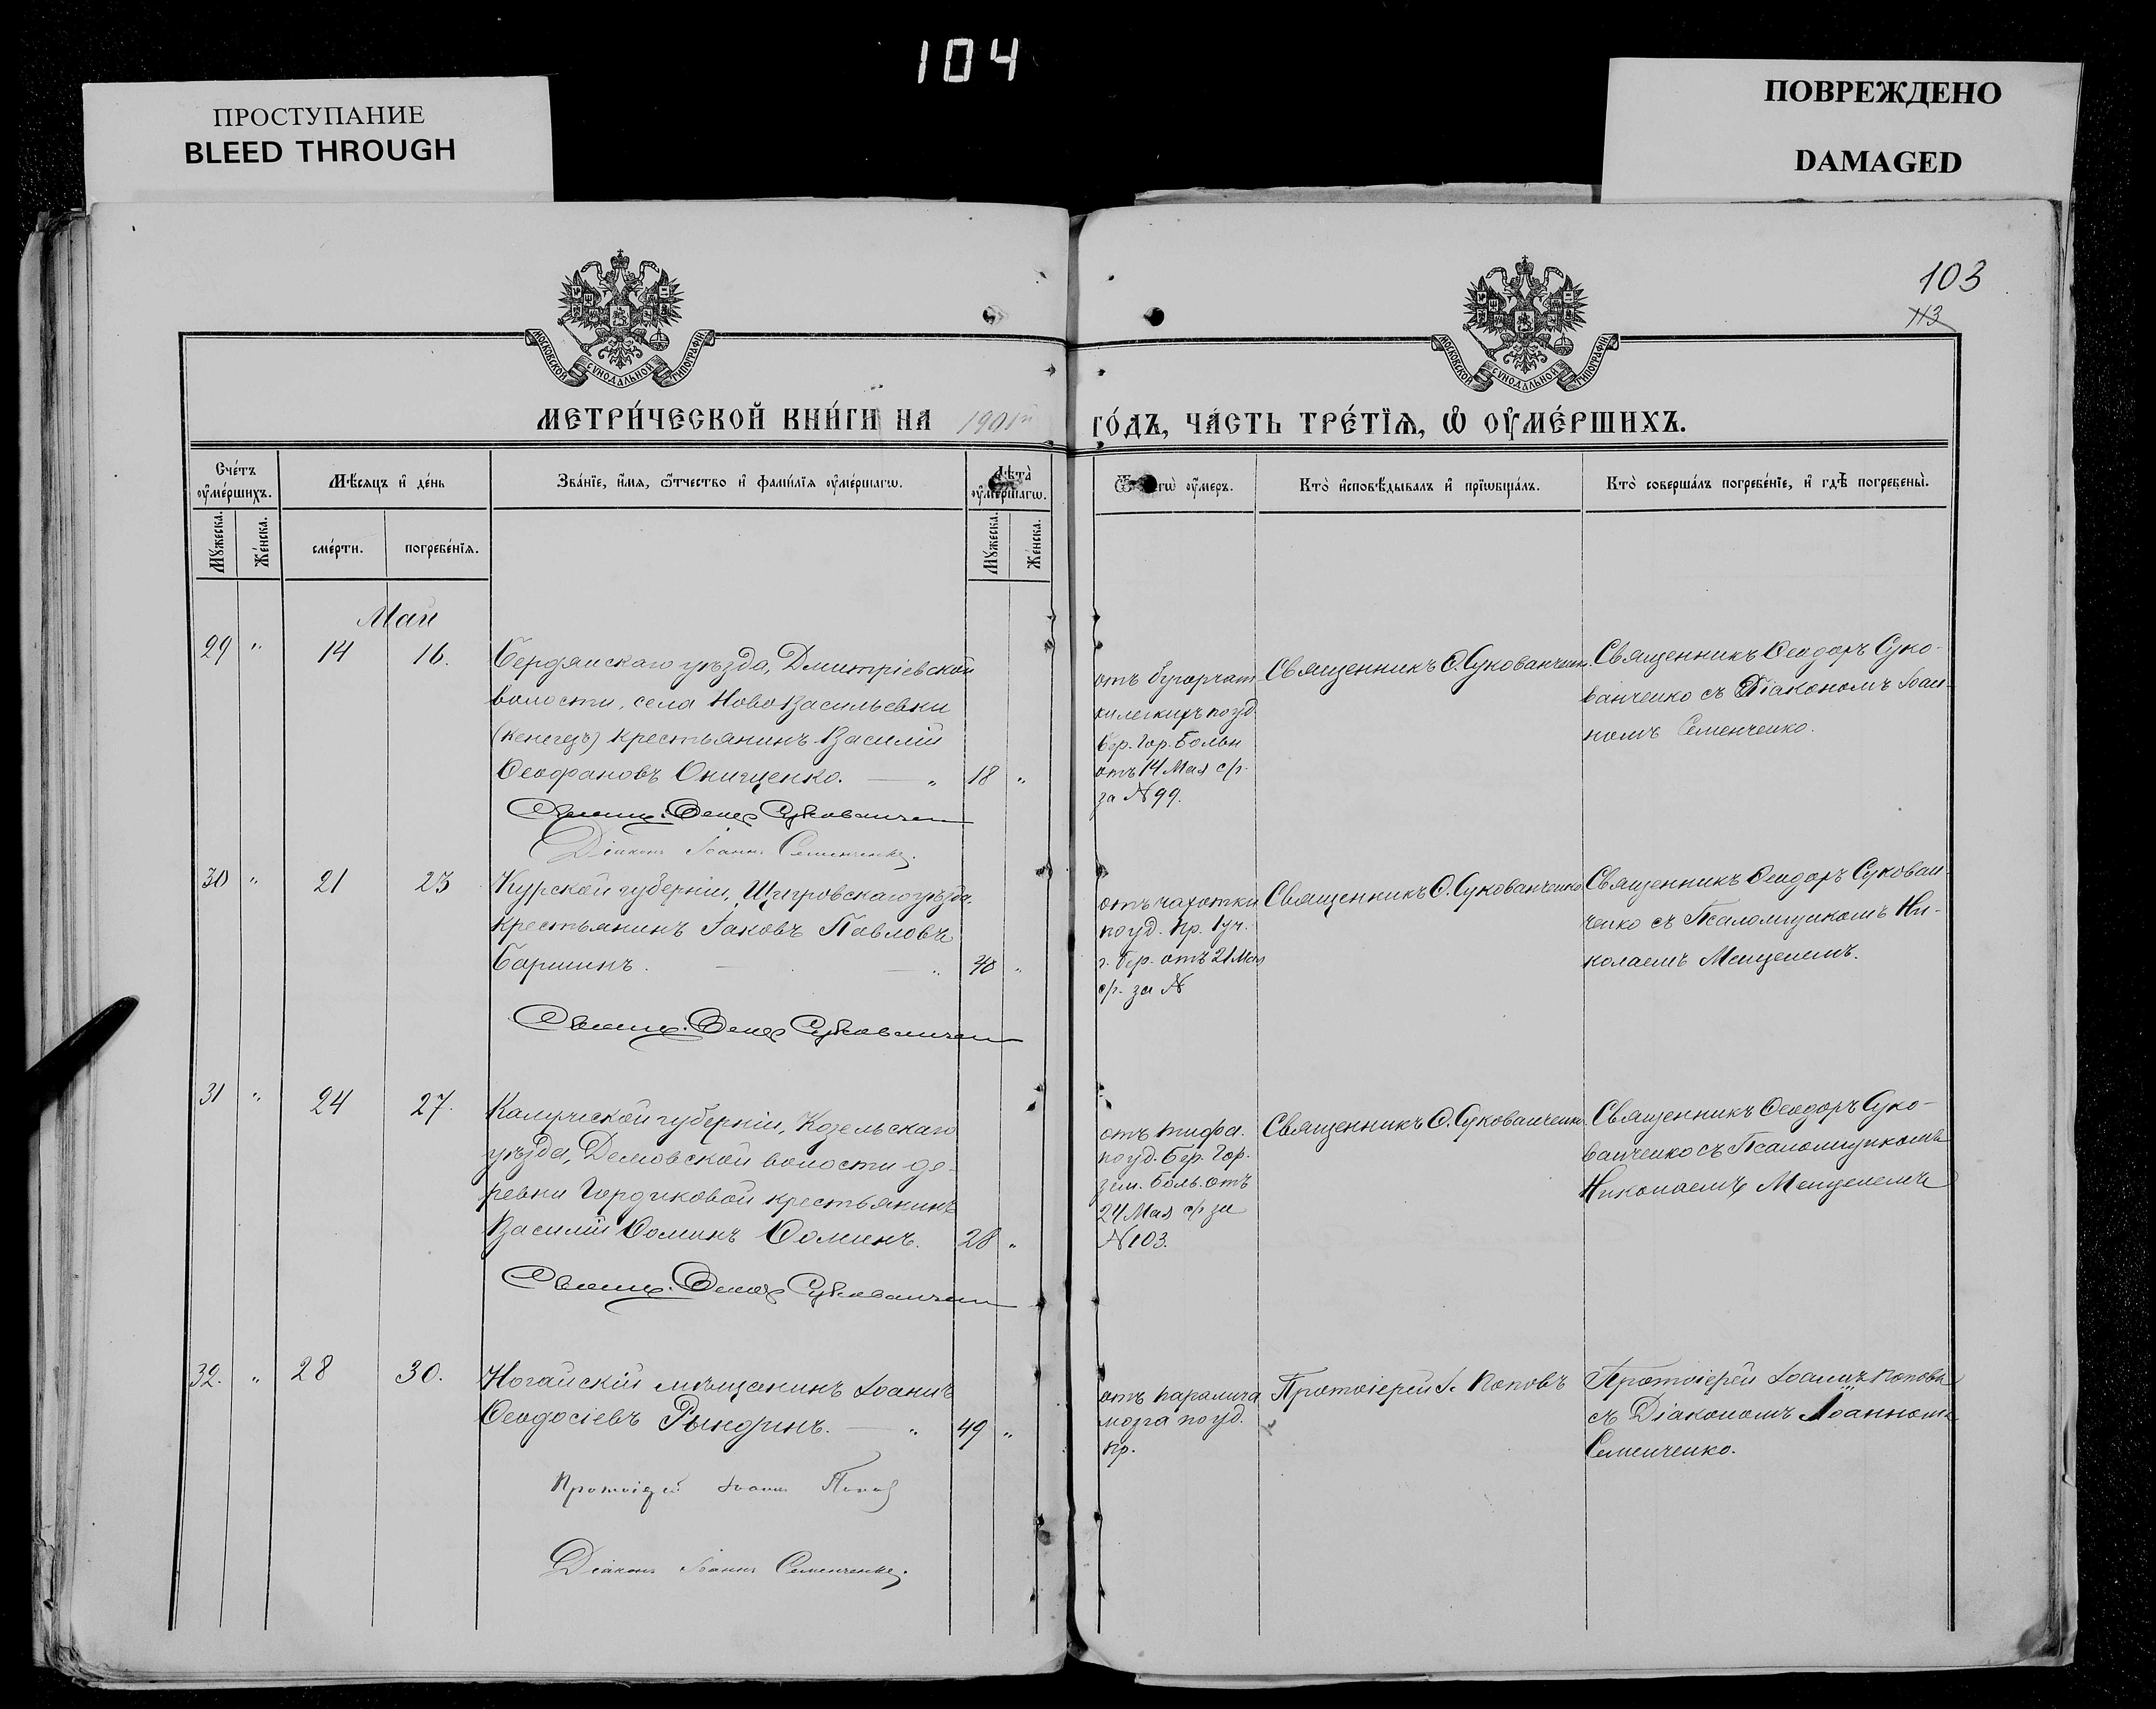 104
ПРОСТУПАНИЕ
BLEED THROUGH
ПОВРЕЖДЕНО
DAMAGED
103
113
МОСКОВСКОЙ СѴНОДАЛЬНОЙ ТИПОГРАФІИ
МОСКОВСКОЙ СѴНОДАЛЬНОЙ ТИПОГРАФІИ
МЕТРИ́ЧЕСКОЙ КНИ́ГИ НА 1901й ГО́ДЪ, ЧА́СТЬ ТРЕ́ТЇѦ, Ѡ҆ ОУ҆МЕ́РШИХЪ.
Сче́тъ оу҆ме́ршихъ.
Мѣ́сяцъ и҆ де́нь
Зва́нїе, и҆́мя, ѻ҆́тчество и҆ фами́лїя оу҆ме́ршагѡ.
Лѣ́та оу҆ме́ршагѡ.
гѡ̀ оу҆́меръ.
Кто̀ и҆сповѣ́дывалъ и҆ прїѡбща́лъ.
Кто̀ соверша́лъ погребе́нїе, и҆ гдѣ̀ погребены̀.
Му́жеска.
Же́нска.
сме́рти.
погребе́нїя.
Му́жеска.
Же́нска.
Май
29 " 14 16.
Бердянскаго уѣзда, Дмитріевской
волости, села НовоВасильевки
крестьянинъ Василій
Ѳеофановъ Онищенко. — " 18 "
Свящ. Ѳеод. Сукованчен
Діаконъ Іоаннъ Семенченко.
отъ бугорчат
ки легкихъ по уд.
Бер. Гор. Больн
отъ 14 Мая с/г.
за №99.
Священникъ Ѳ. Сукованченко.
Священникъ Ѳеодоръ Суко-
ванченко съ Діакономъ Іоан-
номъ Семенченко.
30 " 21 23
Курской губерніи, Щигровскаго уѣзда
крестьянинъ Іаковъ Павловъ
Баршинъ. — " 40 "
Свящ. Ѳеод. Сукованчен
отъ чахотки
по уд. Пр. 1 уч.
г. Бер. отъ 21 Мая
с/г. за №
Священникъ Ѳ. Сукованченко
Священникъ Ѳеодоръ Сукован-
ченко съ Псаломщикомъ Ни-
колаемъ Менцелемъ.
31 " 24 27.
Калужской губерніи, Козельскаго
уѣзда, Демовской волости де-
ревни Гордиковой крестьянинъ
Василій Ѳоминъ Ѳоминъ. 28 "
Свящ. Ѳеод. Сукованчен
отъ тифа.
по уд. Бер. Гор.
зем. боль. отъ
24 Мая с/г за
№103.
Священникъ Ѳ. Сукованченко.
Священникъ Ѳеодоръ Суко-
ванченко съ Псаломщикомъ
Николаемъ Менцелемъ
32. " 28 30.
Ногайскій мѣщанинъ Іоаннъ
Ѳеодосіевъ Рындинъ. — " 49 "
Протоіерей Іоаннъ Попов
Діаконъ Іоаннъ Семенченко.
отъ паралича
мозга по уд.
пр.
Протоіерей І. Поповъ
Протоіерей Іоаннъ Поповъ
съ Діакономъ Іоанномъ
Семенченко.